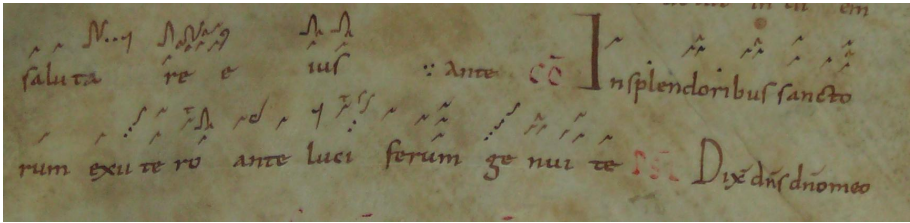 saluta re e ius ante cō Insplendoribus sancto
rum exu te ro ante luci ferum ge nui te ps Dix̄ dn̄s dn̄omeo